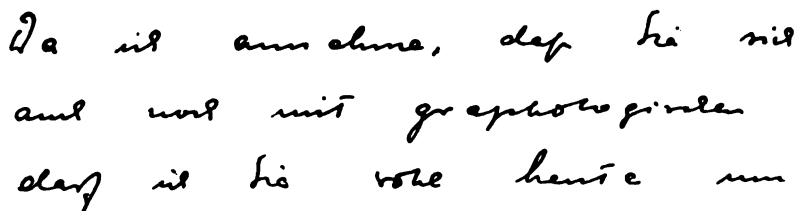 Da ich annehme, daß Sie sich
auch noch mit graphologischen
darf ich Sie wohl heute um